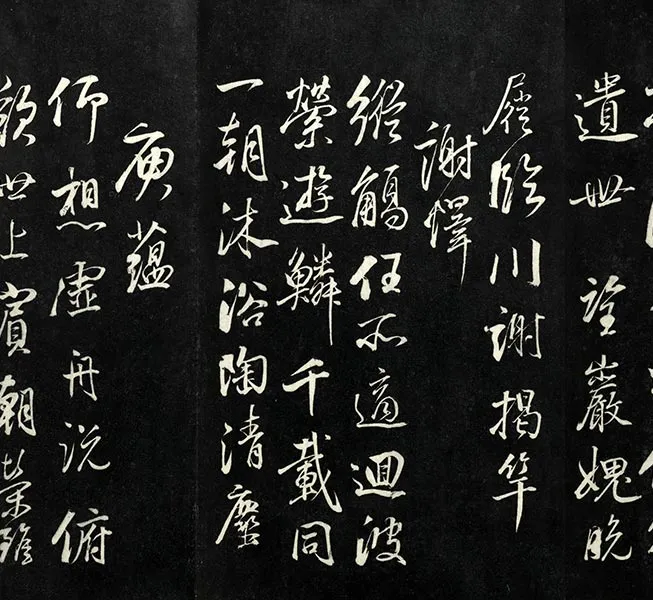 遺世 望巖愧脫
屣臨川謝揭竿
謝繹
縱觴任所適迴波
縈遊鱗千載同
一朝沐浴陶清塵
庾蘊
仰想虛舟說俯
歎世上賓朝榮雖